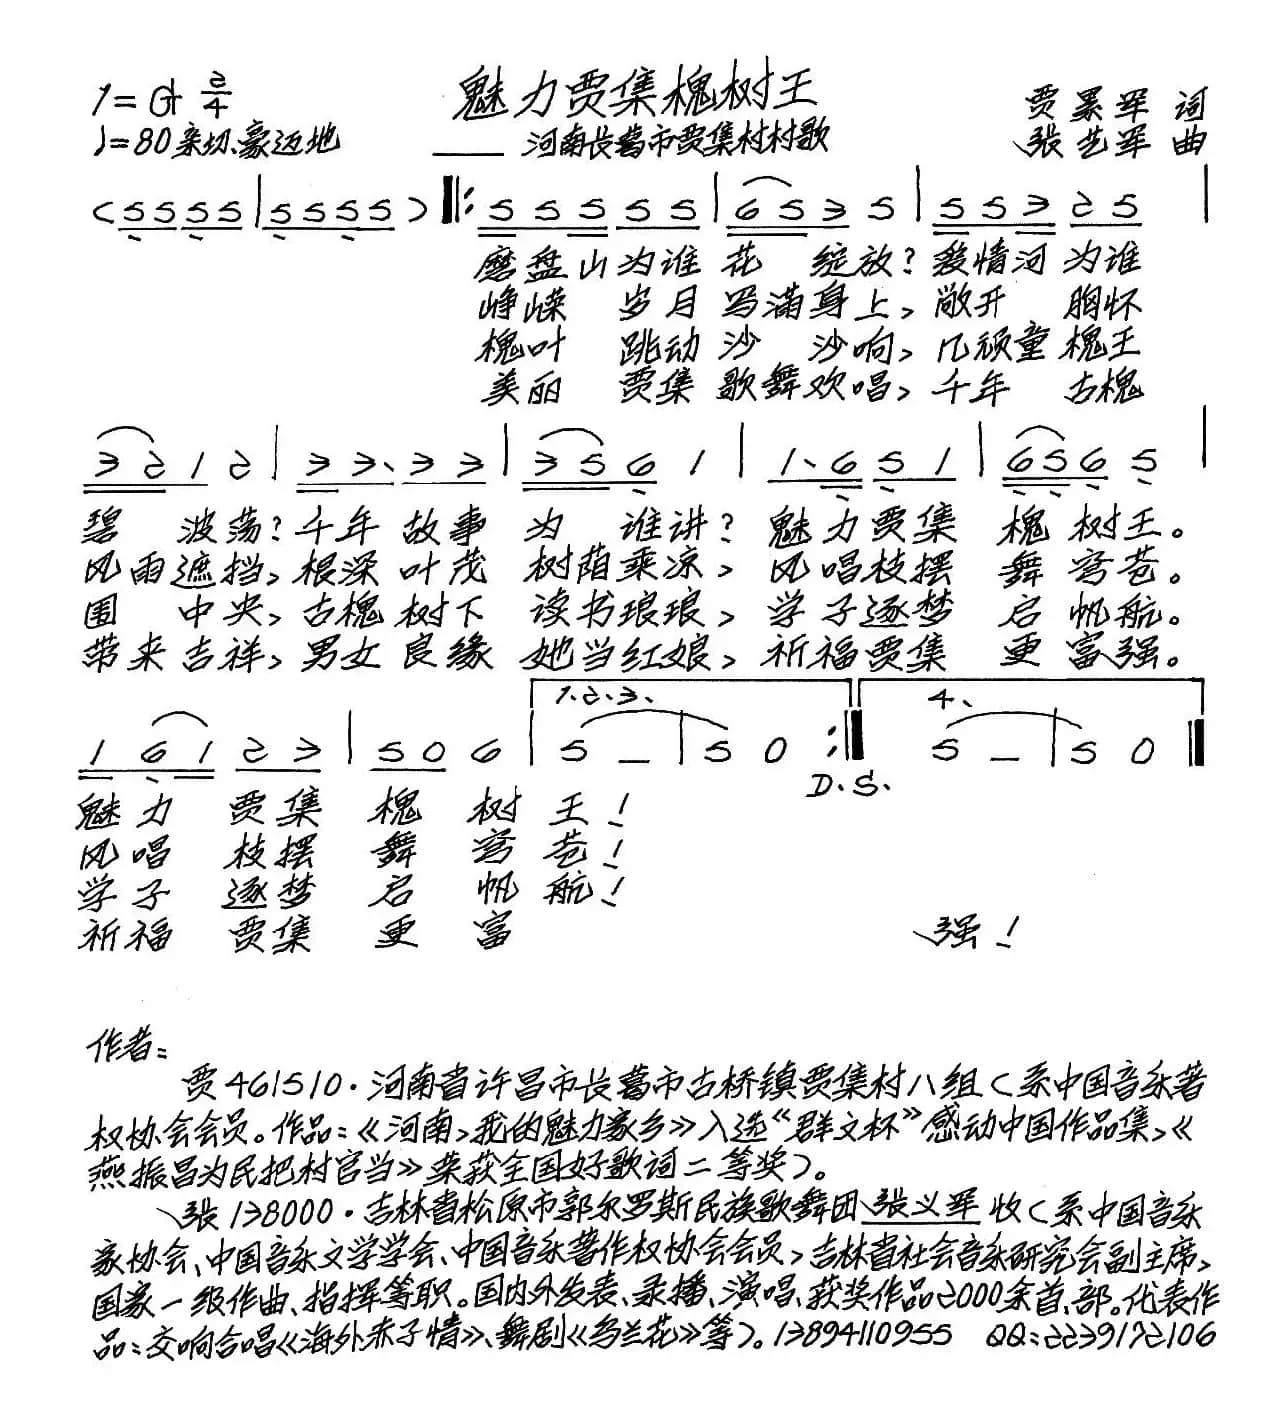 魅力贾集槐树王
1=G 2/4
贾累军 词
♩=80 亲切、豪迈地
—— 河南长葛市贾集村村歌
张艺军 曲
(5555|5555)‖: 55555|6535|55325|
磨盘山为谁花 绽放?爱情河为谁
峥嵘 岁月写满身上,敞开 胸怀
槐叶 跳动沙 沙响,几顽童槐王
美丽 贾集歌舞欢唱,千年 古槐
3212|33.33|3561|1.651|6565|
碧 波荡?千年故事为 谁讲?魅力贾集 槐树王。
风雨遮挡,根深叶茂 树荫乘凉,风唱枝摆 舞穹苍。
围 中央,古槐树下 读书琅琅,学子逐梦 启帆航。
带来吉祥,男女良缘 她当红娘,祈福贾集 更富强。
1.2.3. 4.
16123|506|5 —|50:‖5 —|50‖
D.S.
魅力 贾集 槐 树 王!
风唱 枝摆 舞 穹 苍!
学子 逐梦 启 帆 航!
祈福 贾集 更 富 强!
作者:
贾461510·河南省许昌市长葛市古桥镇贾集村八组(系中国音乐著
权协会会员。作品:《河南,我的魅力家乡》入选“群文杯”感动中国作品集,《
燕振昌为民把村官当》荣获全国好歌词二等奖)。
张138000·吉林省松原市郭尔罗斯民族歌舞团张义军收(系中国音乐
家协会、中国音乐文学学会、中国音乐著作权协会会员,吉林省社会音乐研究会副主席,
国家一级作曲、指挥等职。国内外发表、录播、演唱、获奖作品2000余首、部。代表作
品:交响合唱《海外赤子情》、舞剧《乌兰花》等)。13894110955 QQ:2239172106